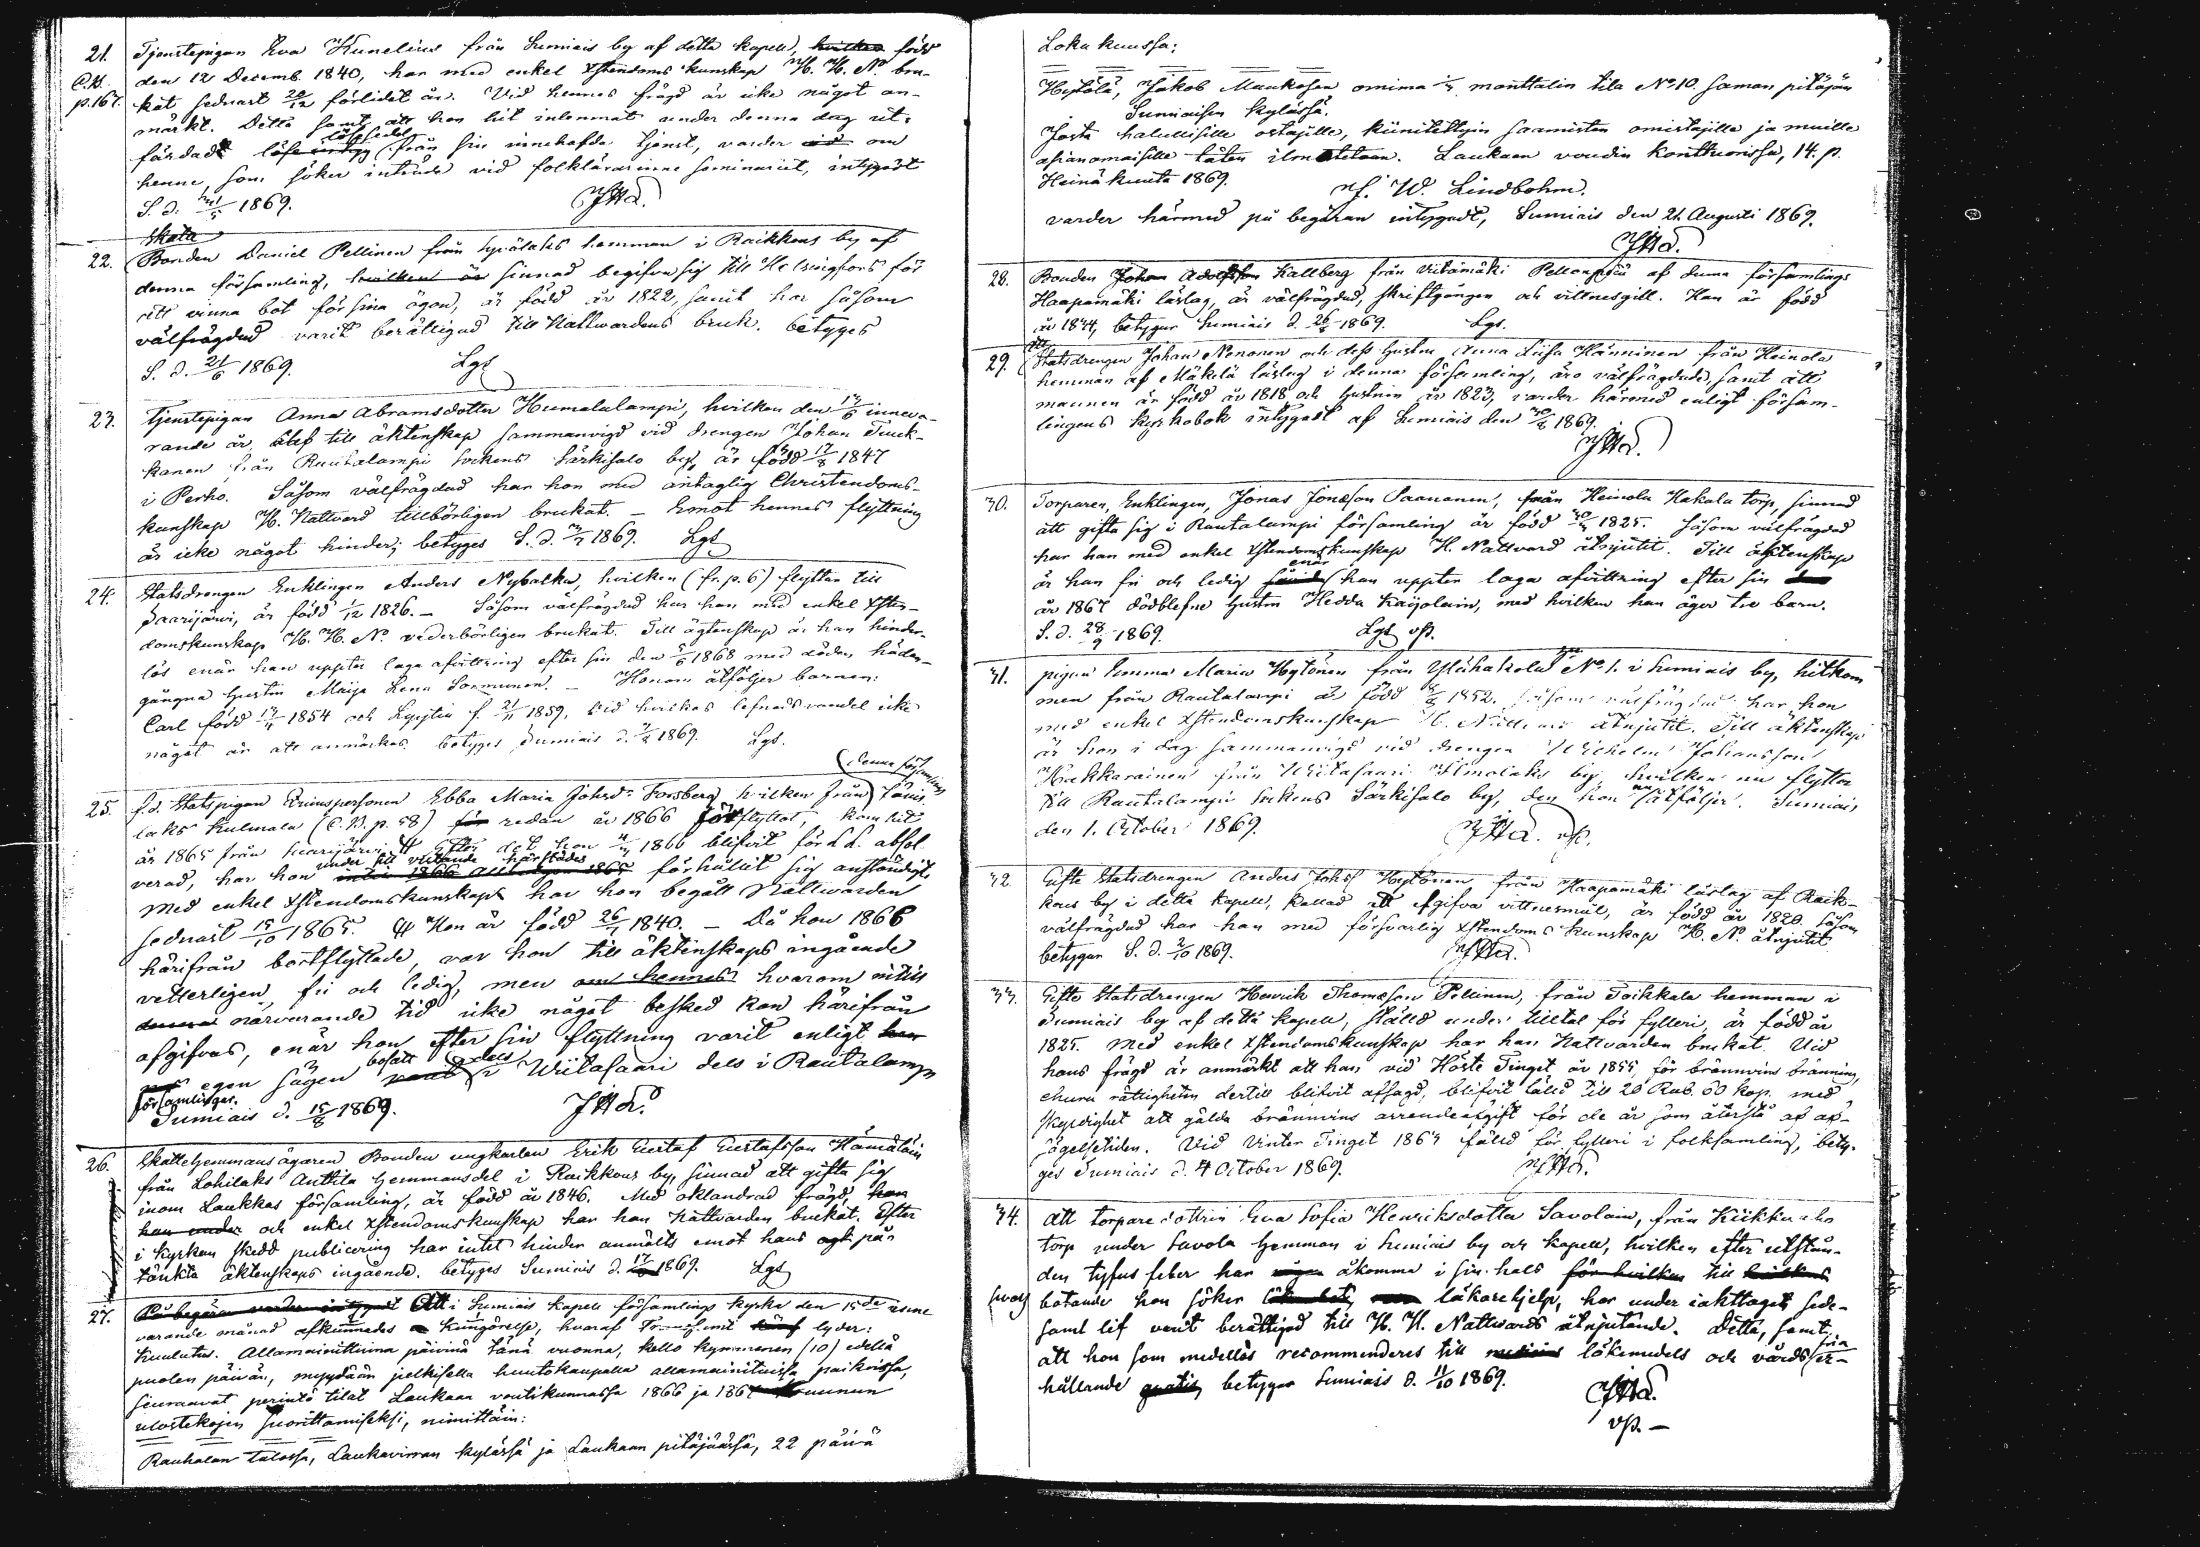 21. Tjenstepigan Eva Hunelius från Sumiais by af detta kapell, hvilken född
C.B. den 12 Decemb. 1840, har med enkel Xstendoms kunskap H. H. N. bru-
p.167. kat sednast 20/12 förlidet år. Vid hennes frägd är icke något an-
märkt. Detta samt att hon hit inlemnat under denna dag ut-
lösesedel
färdadt löse från sin innehafda tjenst, varder om
henne, som söker inträde vid folklärarinne seminariet, intygadt
S. d. 1869.
Skata
22. Bonden Daniel Pellinen från hemman i Raikkous by af
denna församling, hvilken är sinnad begifva sig till Helsingfors för
att vinna bot för sina ögon, är född år 1822, samt har såsom
välfrägdad varit berättigad till Nattvardens bruk. betyges
S. d. 21/6 1869. Lgs
23. Tjenstepigan Anna Abramsdotter Humalalampi, hvilken den inneva-
rande år blef till äktenskap sammanvigd vid drengen Johan Tuuk-
kanen från Rautalampi Sockens Särkisalo by, är född 17/8 1847
i Perho. Såsom välfrägdad har hon med antaglig Christendoms-
kunskap H. Nattvard tillbörligen brukat. – Emot hennes flyttning
är icke något hinder; betyges S. d. 1869. Lgs
24. Statsdrengen Enklingen Anders Nybalka, hvilken (fr. p. 6) flyttar till
Saarijärvi, är född 1/12 1826. – Såsom välfrägdad har han med enkel Xsten-
domskunskap H. H. N. vederbörligen brukat. Till ägtenskap är han hinder-
lös enär han uppter laga afvittring efter sin den 1868 med döden håden-
gångna hustru Maija Lena Sormunen. – Honom åtföljer barnen:
Carl född 1854 och f. 21/11 1859, vid hvilkas lefnadsvandel icke
något är att anmärkas. betyges Sumiais d. 1869. Lgs.
(denna församlings
25. f.d. Statspigan Qvinspersonen Ebba Maria Johsd:r Forsberg hvilken från
laks Kulmala (C.B. p. 58) redan år 1866 flyttat, kom hit
år 1865 från Saarijärvi. Efter det hon 1866 blifvit för L. L. absol-
under sitt vistande härstädes
verad, har hon intill 1866 förhållit sig anständigt
Med enkel Xstendomskunskap har hon begått Nattvarden
sednast 15/10 1865. Hon är född 26/4 1840. – Då hon 1866
härifrån bortflyttade, var hon till äktenskaps ingående
vetterligen fri och ledig, men om hennes hvarom intill
närvarande tid icke något besked kan härifrån
afgifvas, enär hon efter sin flyttning varit enligt
egen sägen bosatt dels i Wiitasaari dels i Rautalampi
församlingar.
Sumiais d. 15/8 1869.
26. Skattehemmansägaren Bonden ungkarlen Erik Gustaf Gustafsson Hämäläin
från Lohilaks Anttila hemmansdel i Raikkous by, sinnad att gifta sig
inom Laukkas församling, är född år 1846. Med oklandrad frägd, han
han under och enkel Xstendomskunskap har han Nattvarden brukat. Efter
i kyrkan skedd publicering har intet hinder anmälts emot hans
tänkta äktenskaps ingående. betyges Sumiais d. 1869. Lgs
27. På begäran varder intygadt Att i Sumiais kapell församlings kyrka den 15de
varande månad afkunnades kungörelse, hvaraf lyder:
Kuulutus. Allamainittuina päivinä tänä vuonna, kello kymmenen (10) edellä
puolen päivän, myydään julkisella huutokaupalla allamainituissa paikoissa,
seuraavat perintö tilat Laukaan voutikunnassa 1866 ja 1867 kruunun
ulostekojen suorittamiseksi, nimittäin:
Rauhalan talossa, Laukavirran kylässä ja Laukaan pitäjäässä, 22 päivä
Lokakuussa:
Hystälä, Jakob Maukosen omima manttalin tila No 10. saman pitäjän
Sumiaisen kylässä.
Josta halullisille ostajille, kiinitettyin saamisten omistajille ja muille
asianomaisille täten ilmoitetaan. Laukaan voudin konttuorissa, 14. p.
Heinäkuuta 1869. W. Lindbohm.
varder härmed på begäran intygadt, Sumiais den 21 Augusti 1869.
28. Bonden Johan Adolfsson Kallberg från af denna församlings
Haapamäki läslag, är välfrägdad, skriftgången och vittnesgill. Han är född
år 1844, betygar Sumiais d. 26/8 1869. Lgs.
Att
29. Statsdrengen Johan Nenonen och dess hustru Anna Liisa Hänninen från Heinola
hemman af Mäkilä läslag i denna församling, äro välfrägdade, samt att
mannen är född år 1818 och hustrun år 1823, varder härmed enligt försam-
lingens kyrkobok intygadt af Sumiais den 1869.
30. Torparen, Enklingen, Jonas Jonasson Paananen, från Heinola Hakala torp, sinnad
att gifta sig i Rautalampi församling är född 1825. Såsom välfrägdad
har han med enkel Xstendomskunskap H. Nattvard åtnjutit. Till äktenskap
enär
är han fri och ledig han uppter laga afvittring efter sin
år 1867 dödblefne hustru Hedda Kaijolain, med hvilken han äger tre barn.
S. d. 28/9 1869. Lgs vp.
31. pigan Emma Maria Hytönen från Ylähakola No 1. i Sumiais by, hitkom
men från Rautalampi är född 1852. Såsom välfrägdad har hon
med enkel Xstendomskunskap H. Nattvard åtnjutit. Till äktenskap
är hon i dag sammanvigd vid drengen Wilhelm Johansson
Kakkarainen från Wiitasaari Ilmolaks by, hvilken nu flyttar
till Rautalampi Sockens Särkisalo by, den hon åtföljer. Sumiais
den 1. October 1869. vp.
32. Gifte Statsdrengen Anders Johss Hytönen från Haapamäki läslag af Raik-
kous by i detta kapell, kallad att afgifva vittnesmål, är född år 1820. Såsom
välfrägdad har han med försvarlig Xstendoms kunskap H. N. åtnjutit
betygar S. d. 2/10 1869.
33. Gifte Statsdrengen Henrik Thomasson Pellinen, från Toikkala hemman i
Sumiais by af detta kapell, ställd under tilltal för fylleri, är född år
1825. Med enkel Xstendomskunskap har han Nattvarden brukat. Vid
hans frägd är anmärkt att han vid Höste Tinget år 1855, för brännvins bränning,
ehuru rättigheten dertill blifvit afsagd, blifvit fälld till 20 Rub. 60 kop. med
skyldighet att gälda brännvins arrendeafgift för de år som återstå af af-
sägelsetiden. Vid Vinter Tinget 1864 fälld för fylleri i folksamling, bety-
ges Sumiais d. 4 October 1869.
34. Att torparedottren Eva Sofia Henriksdotter Savolain, från Kiikku aho
torp under Savola hemman i Sumiais by och kapell, hvilken efter utstån-
den tyfus feber har åkomma i sin hals för hvilken till
hvars botande hon söker läkarehjelp, har under iakttaget sede-
samt lif varit berättigad till H. H. Nattvards åtnjutande. Detta, samt
att hon som medellös recommenderes till läkemedels och vårds fria er-
hållande gratis, betygar Sumiais d. 11/10 1869.
vp. –